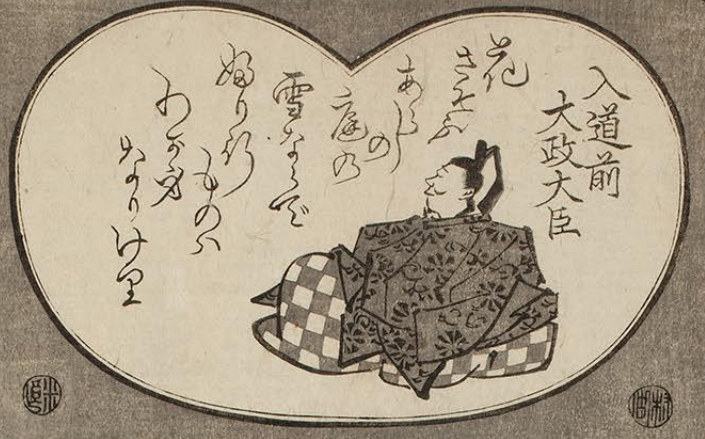 入道前
大政大臣
花
さそふ
あらしの
庭の
雪ならで
ふり行
ものハ
わが身
なりけり